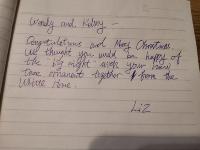 Wendy and Kelsey -
Congratulations and Merry Christmas.
We thought you would be happy of
the "big night" over your new
tree ornament together from the
White
Liz